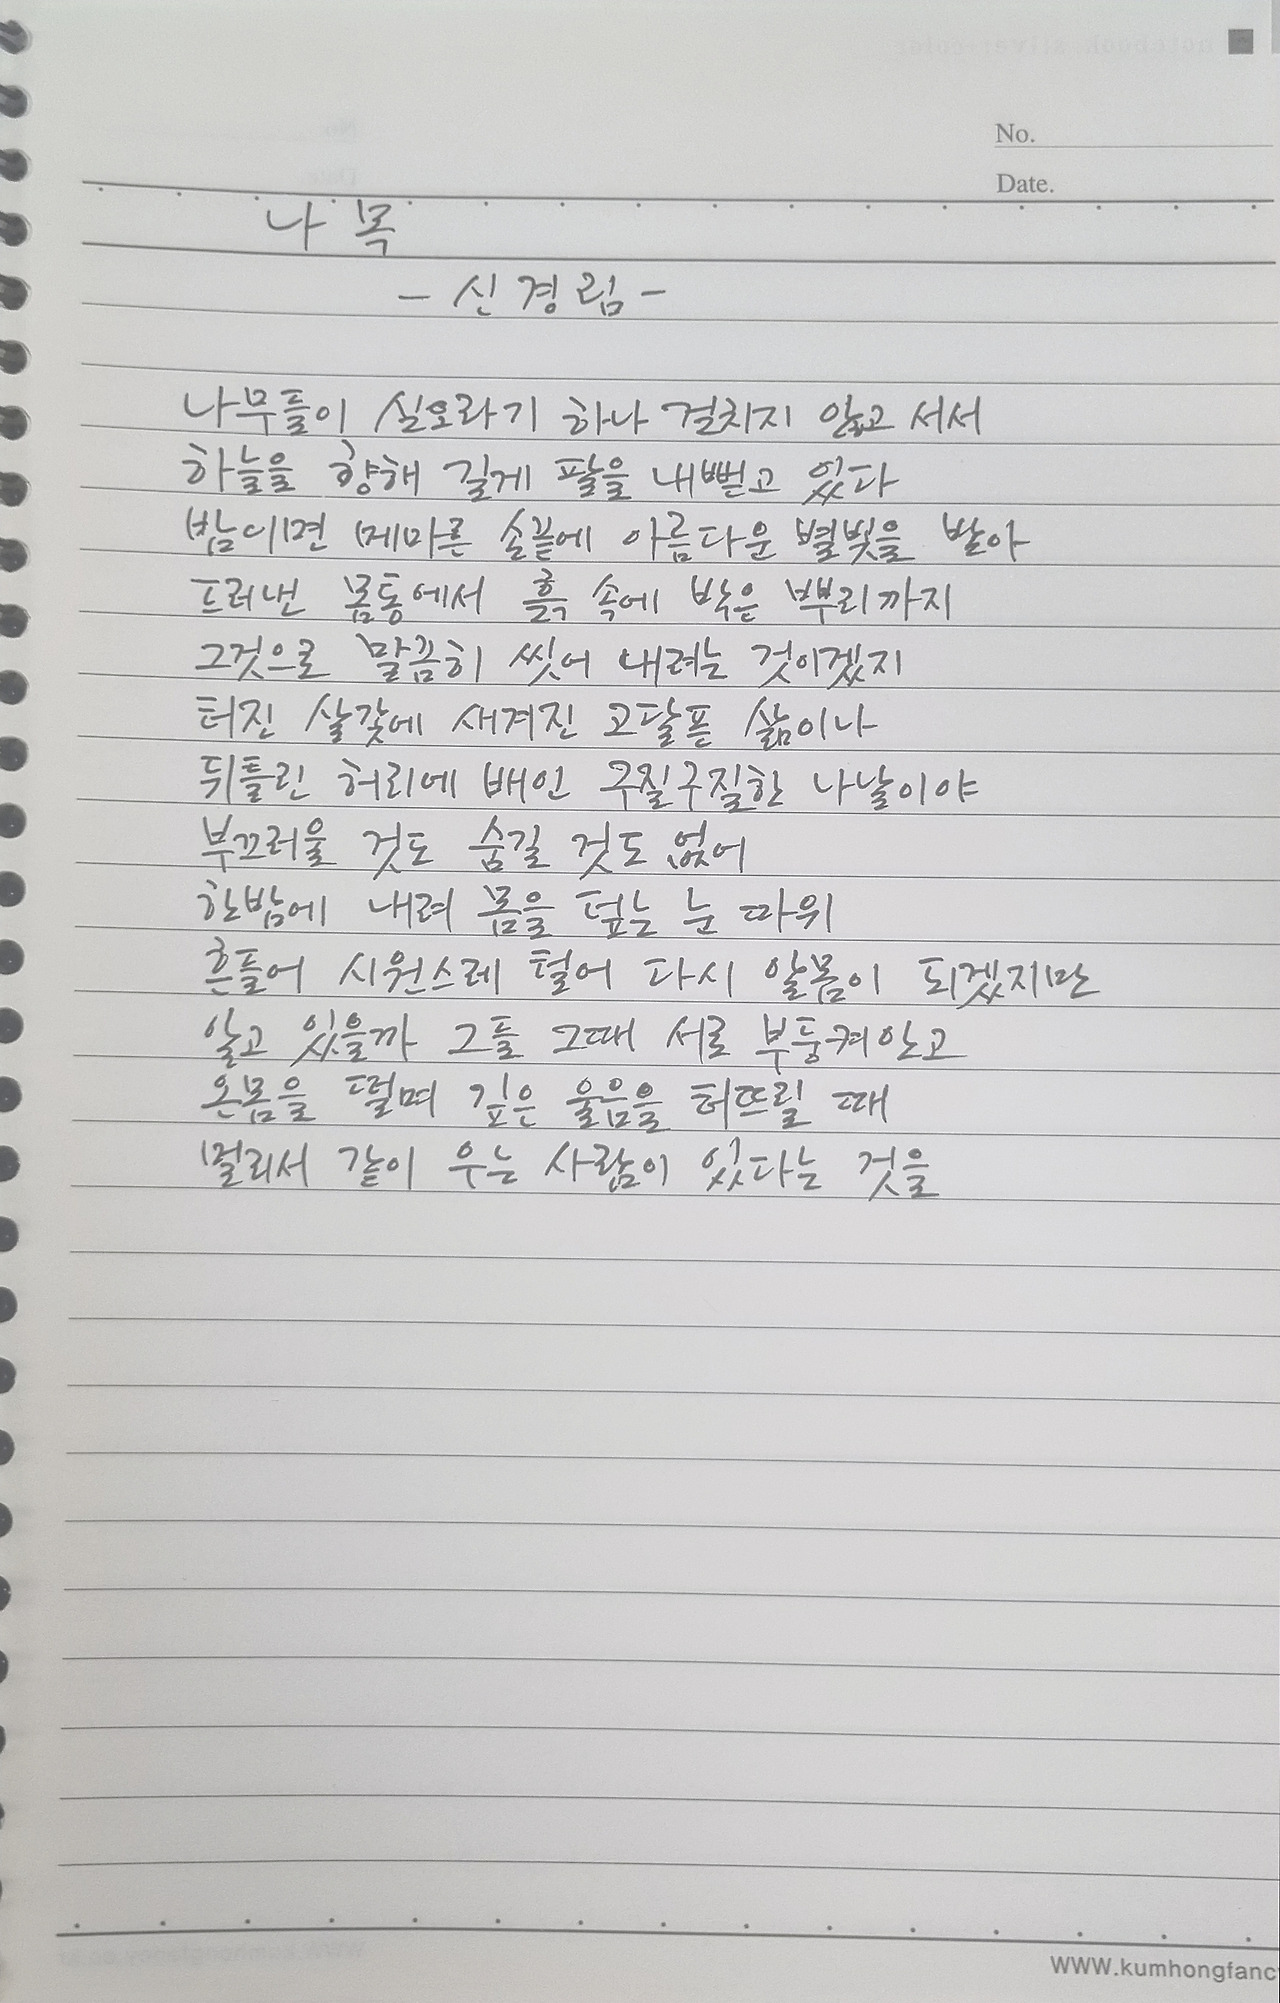 No.
Date.
나 목
- 신경림 -
나무들이 실오라기 하나 걸치지 않고 서서
하늘을 향해 길게 팔을 내뻗고 있다
밤이면 메마른 손끝에 아름다운 별빛을 받아
드러낸 몸통에서 흙 속에 박은 뿌리까지
그것으로 말끔히 씻어 내려는 것이겠지
터진 살갗에 새겨진 고달픈 삶이나
뒤틀린 허리에 배인 구질구질한 나날이야
부끄러울 것도 숨길 것도 없어
한밤에 내려 몸을 덮는 눈 따위
흔들어 시원스레 털어 다시 알몸이 되겠지만
알고 있을까 그들 그때 서로 부둥켜안고
온몸을 떨며 깊은 울음을 터뜨릴 때
멀리서 같이 우는 사람이 있다는 것을
WWW.kumhongfanc